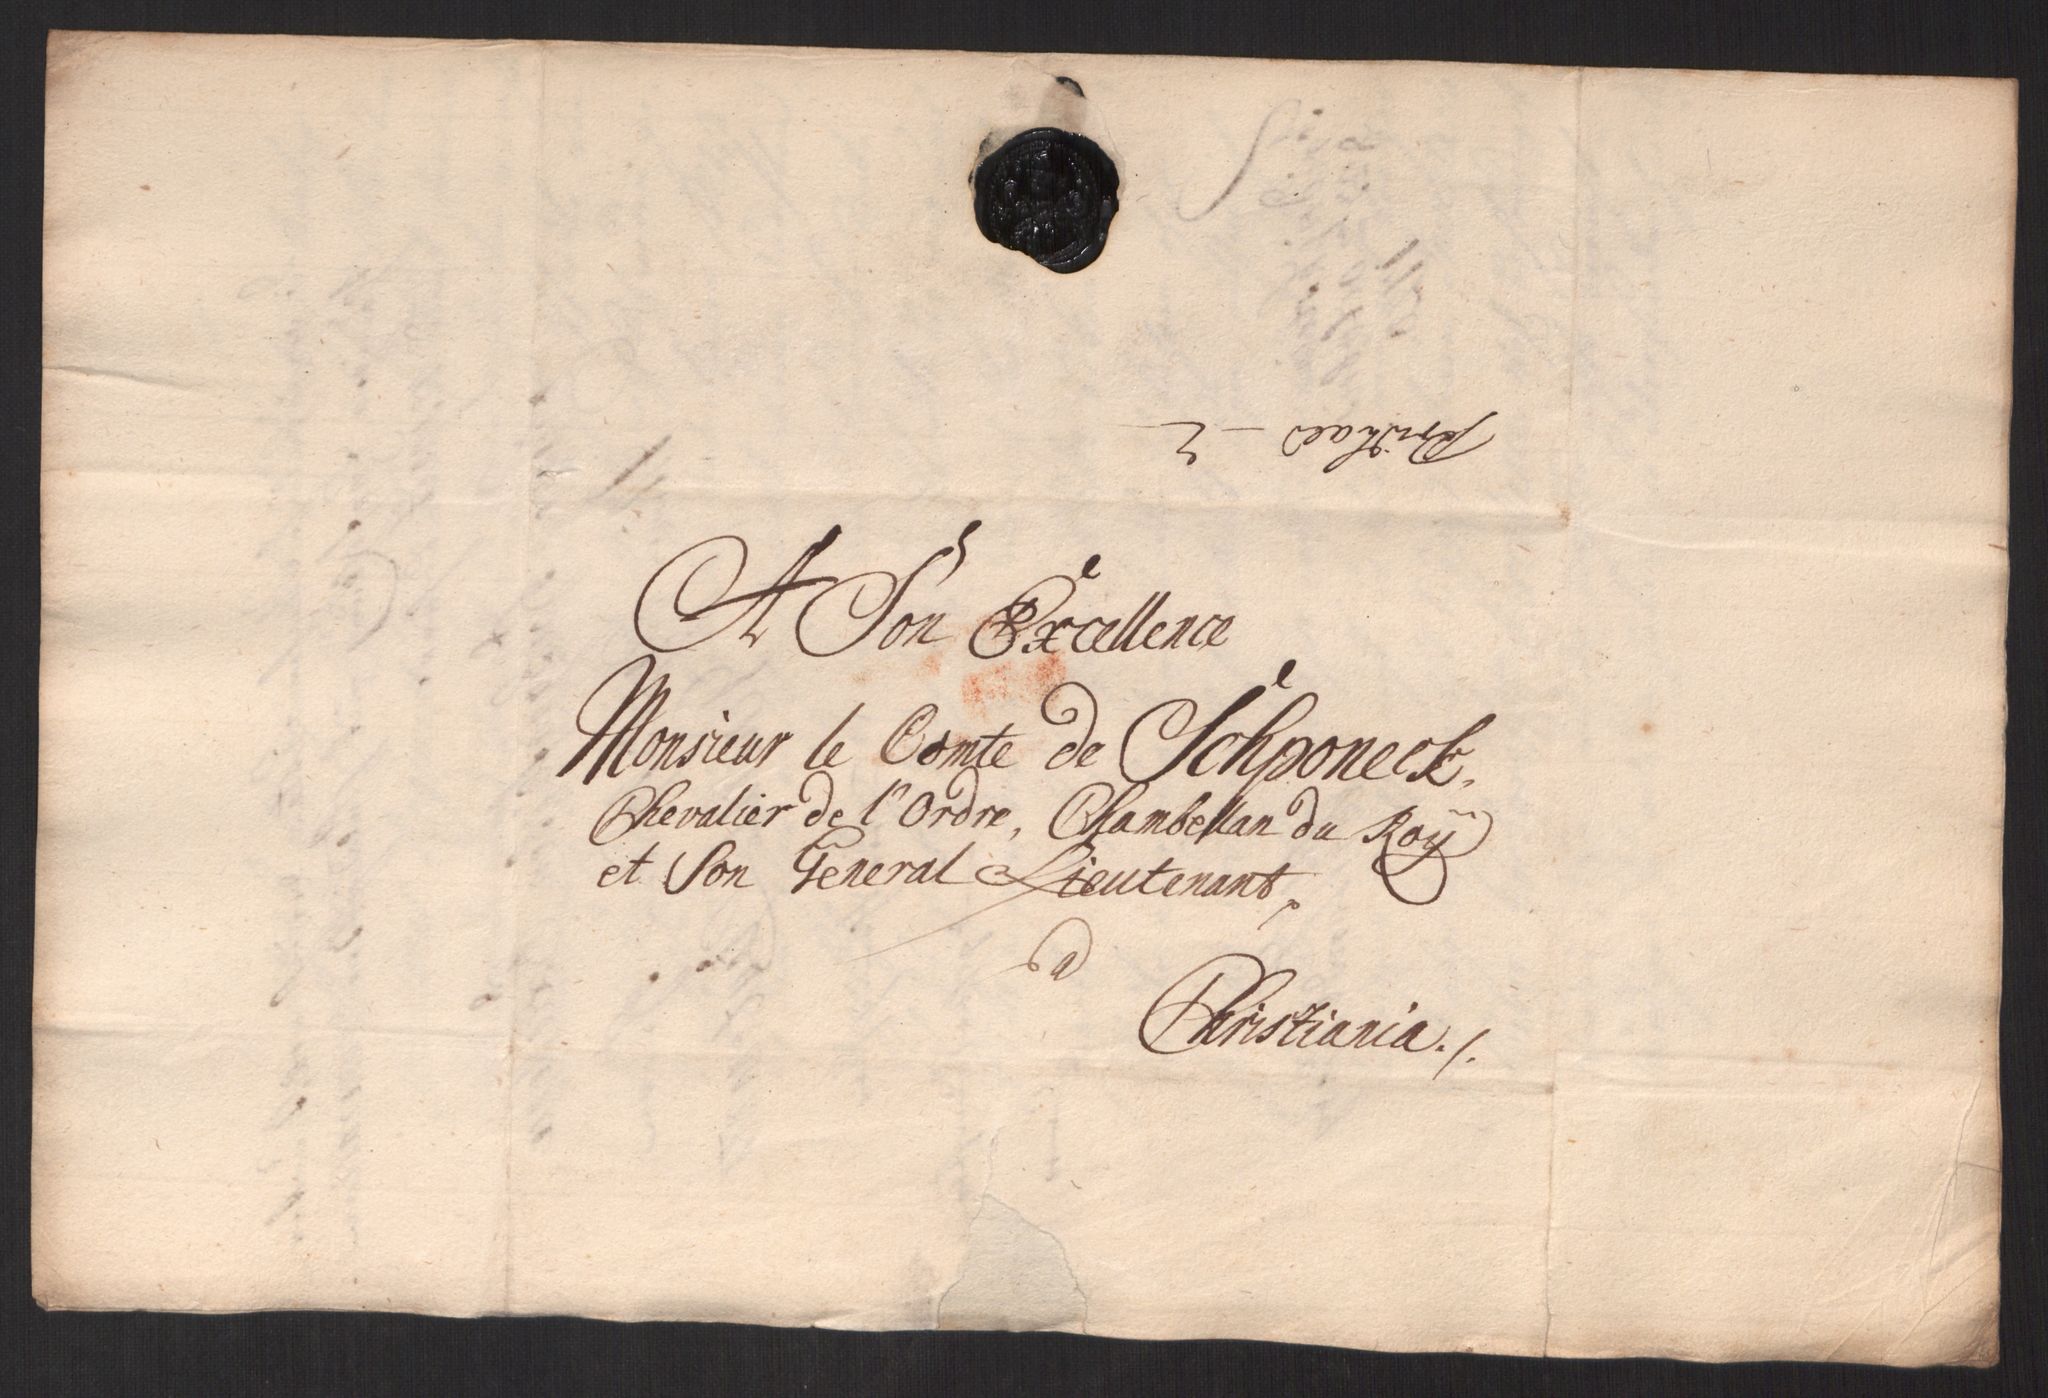 A Son Excellence
Monsieur le Comte de Schponeck,
Chevalier de l'Ordre, Chambellan du Roÿ
et Son General Lieutenant,
a
Christiania ./.